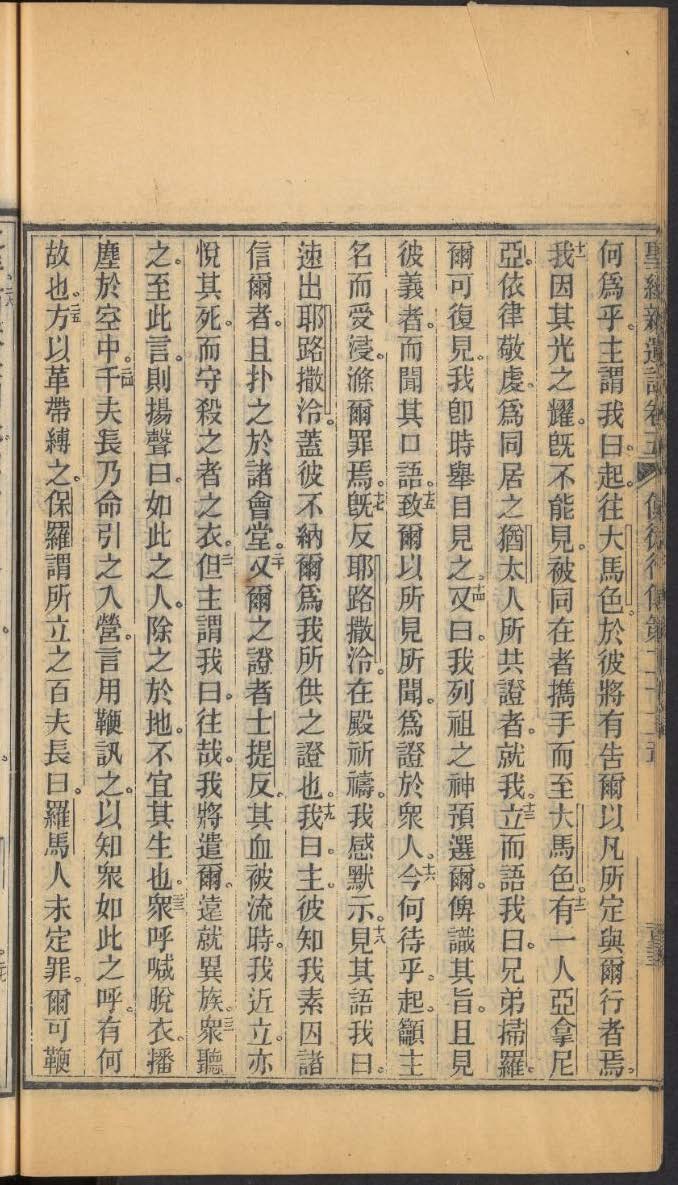 聖經新遺詔卷五 使徒行傳第二十二章
何爲乎。主謂我曰。起。往大馬色。於彼將有告爾以凡所定與爾行者焉。
十一我因其光之耀。旣不能見。被同在者攜手而至大馬色。十二有一人亞拿尼
亞。依律敬虔。爲同居之猶太人所共證者。就我。十三立而語我曰。兄弟掃羅。
爾可復見。我卽時舉目見之。十四又曰。我列祖之神預選爾。俾識其旨。且見
彼義者。而聞其口語。十五致爾以所見所聞。爲證於衆人。十六今何待乎。起。籲主
名而受浸。滌爾罪焉。十七旣反耶路撒冷。在殿祈禱。我感默示。十八見其語我曰。
速出耶路撒冷。蓋彼不納爾爲我所供之證也。十九我曰。主。彼知我素囚諸
信爾者。且扑之於諸會堂。二十又爾之證者士提反。其血被流時。我近立。亦
悅其死。而守殺之者之衣。二一但主謂我曰。往哉。我將遣爾。遠就異族。二二衆聽
之。至此言。則揚聲曰。如此之人。除之於地。不宜其生也。二三衆呼喊脫衣。播
塵於空中。二四千夫長乃命引之入營。言用鞭訊之。以知衆如此之呼。有何
故也。二五方以革帶縛之。保羅謂所立之百夫長曰。羅馬人未定罪。爾可鞭